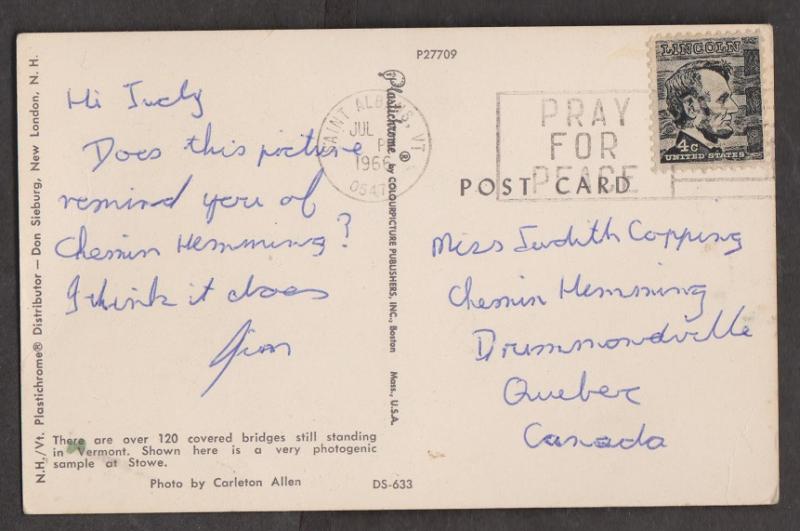 P27709
LINCOLN
4c
UNITED STATES
SAINT ALBANS, VT
JUL
P
1966
PRAY
FOR
PEACE
POST CARD
Hi Judy
Does this picture
remind you of
Chemin Hemming?
I think it does
Jim
Miss Judith Copping
Chemin Hemming
Drummondville
Quebec
Canada
There are over 120 covered bridges still standing
in Vermont. Shown here is a very photogenic
sample at Stowe.
Photo by Carleton Allen
DS-633
N.H./Vt. Plastichrome® Distributor — Don Sieburg, New London, N. H.
Plastichrome® by COLOURPICTURE PUBLISHERS, INC., Boston Mass., U.S.A.